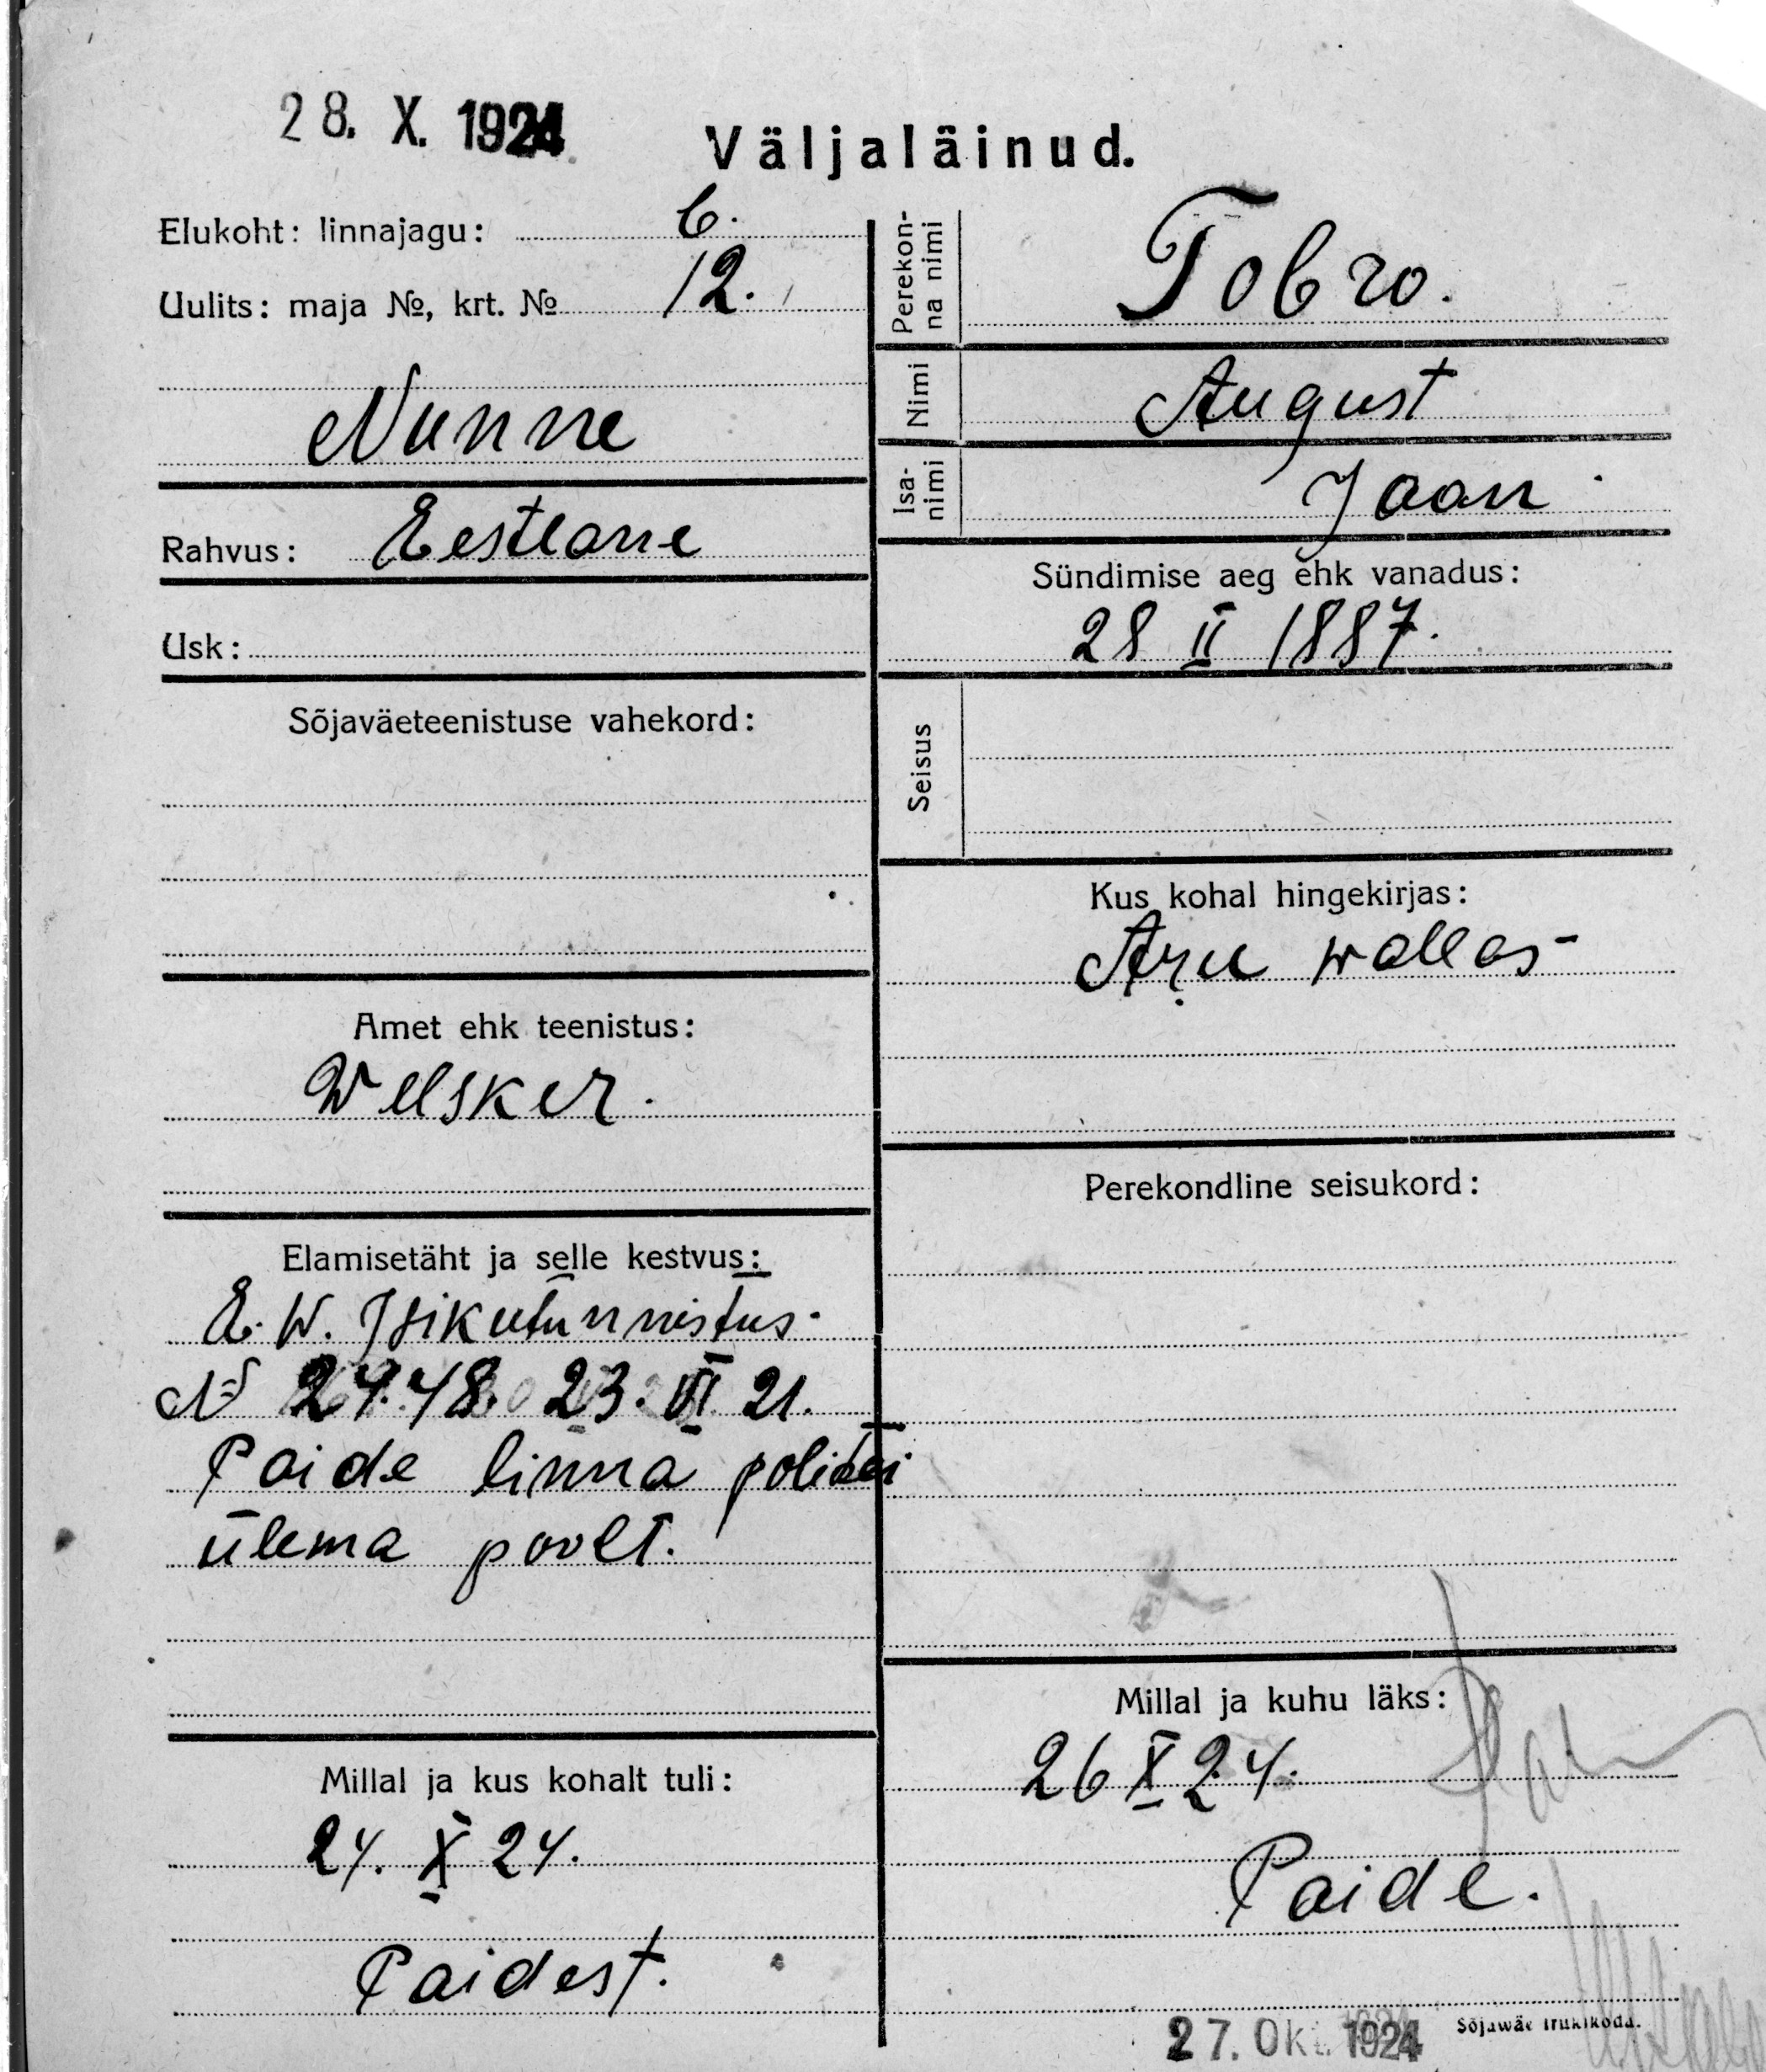 28. X. 1924
Väljaläinud.
Elukoht: linnajagu: 6.
Uulits: maja №, krt. № 12.
Nunne
Rahvus: Eestlane
Usk:
Sõjaväeteenistuse vahekord:
Amet ehk teenistus:
Welsker.
Elamisetäht ja selle kestvus:
E. W. Isikutunnistus
№ 2448. 23. VI 21.
Paide linna politsei
ülema poolt.
Millal ja kus kohalt tuli:
24. X 24.
Paidest.
Perekon-
na nimi
Tobro.
Nimi August
Isa-
nimi
Jaan
Sündimise aeg ehk vanadus:
28 II 1887.
Seisus
Kus kohal hingekirjas:
Aru wallas
Perekondline seisukord:
Millal ja kuhu läks:
26 X 24.
Paide.
27. Okt. 1924
Sõjawäe trükikoda.